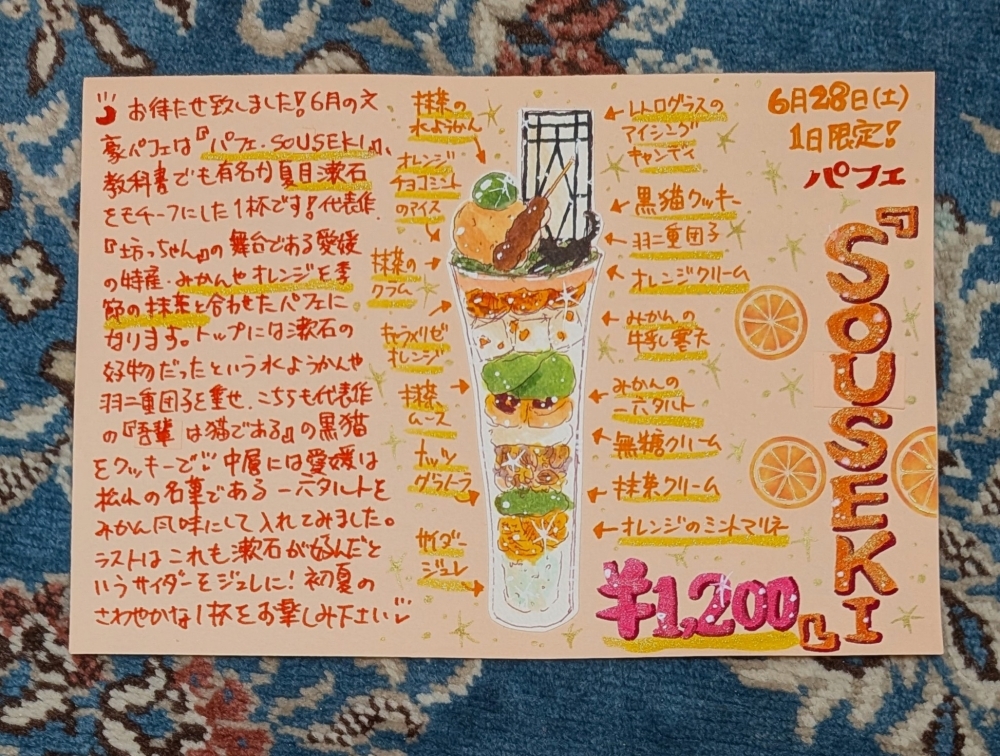 お待たせ致しました！6月の文
豪パフェは『パフェ・SOUSEKI』、
教科書でも有名な夏目漱石
をモチーフにした1杯です！代表作
『坊っちゃん』の舞台である愛媛
の特産・みかんやオレンジを季
節の抹茶と合わせたパフェに
なります。トップには漱石の
好物だったという水ようかんや
羽二重団子を乗せ、こちらも代表作
の『吾輩は猫である』の黒猫
をクッキーで 中層には愛媛は
松山の名菓である一六タルトを
みかん風味にして入れてみました。
ラストはこれも漱石が好んだと
いうサイダーをジュレに！初夏の
さわやかな1杯をお楽しみ下さい
抹茶の
水ようかん
オレンジ
チョコミント
のアイス
抹茶の
クラム
キャラメリゼ
オレンジ
抹茶
ムース
ナッツ
グラノーラ
サイダー
ジュレ
レトログラスの
アイシング
キャンディ
黒猫クッキー
羽二重団子
オレンジクリーム
みかんの
牛乳寒天
みかんの
一六タルト
無糖クリーム
抹茶クリーム
オレンジのミントマリネ
6月28日(土)
1日限定！
パフェ
『SOUSEKI』
¥1,200